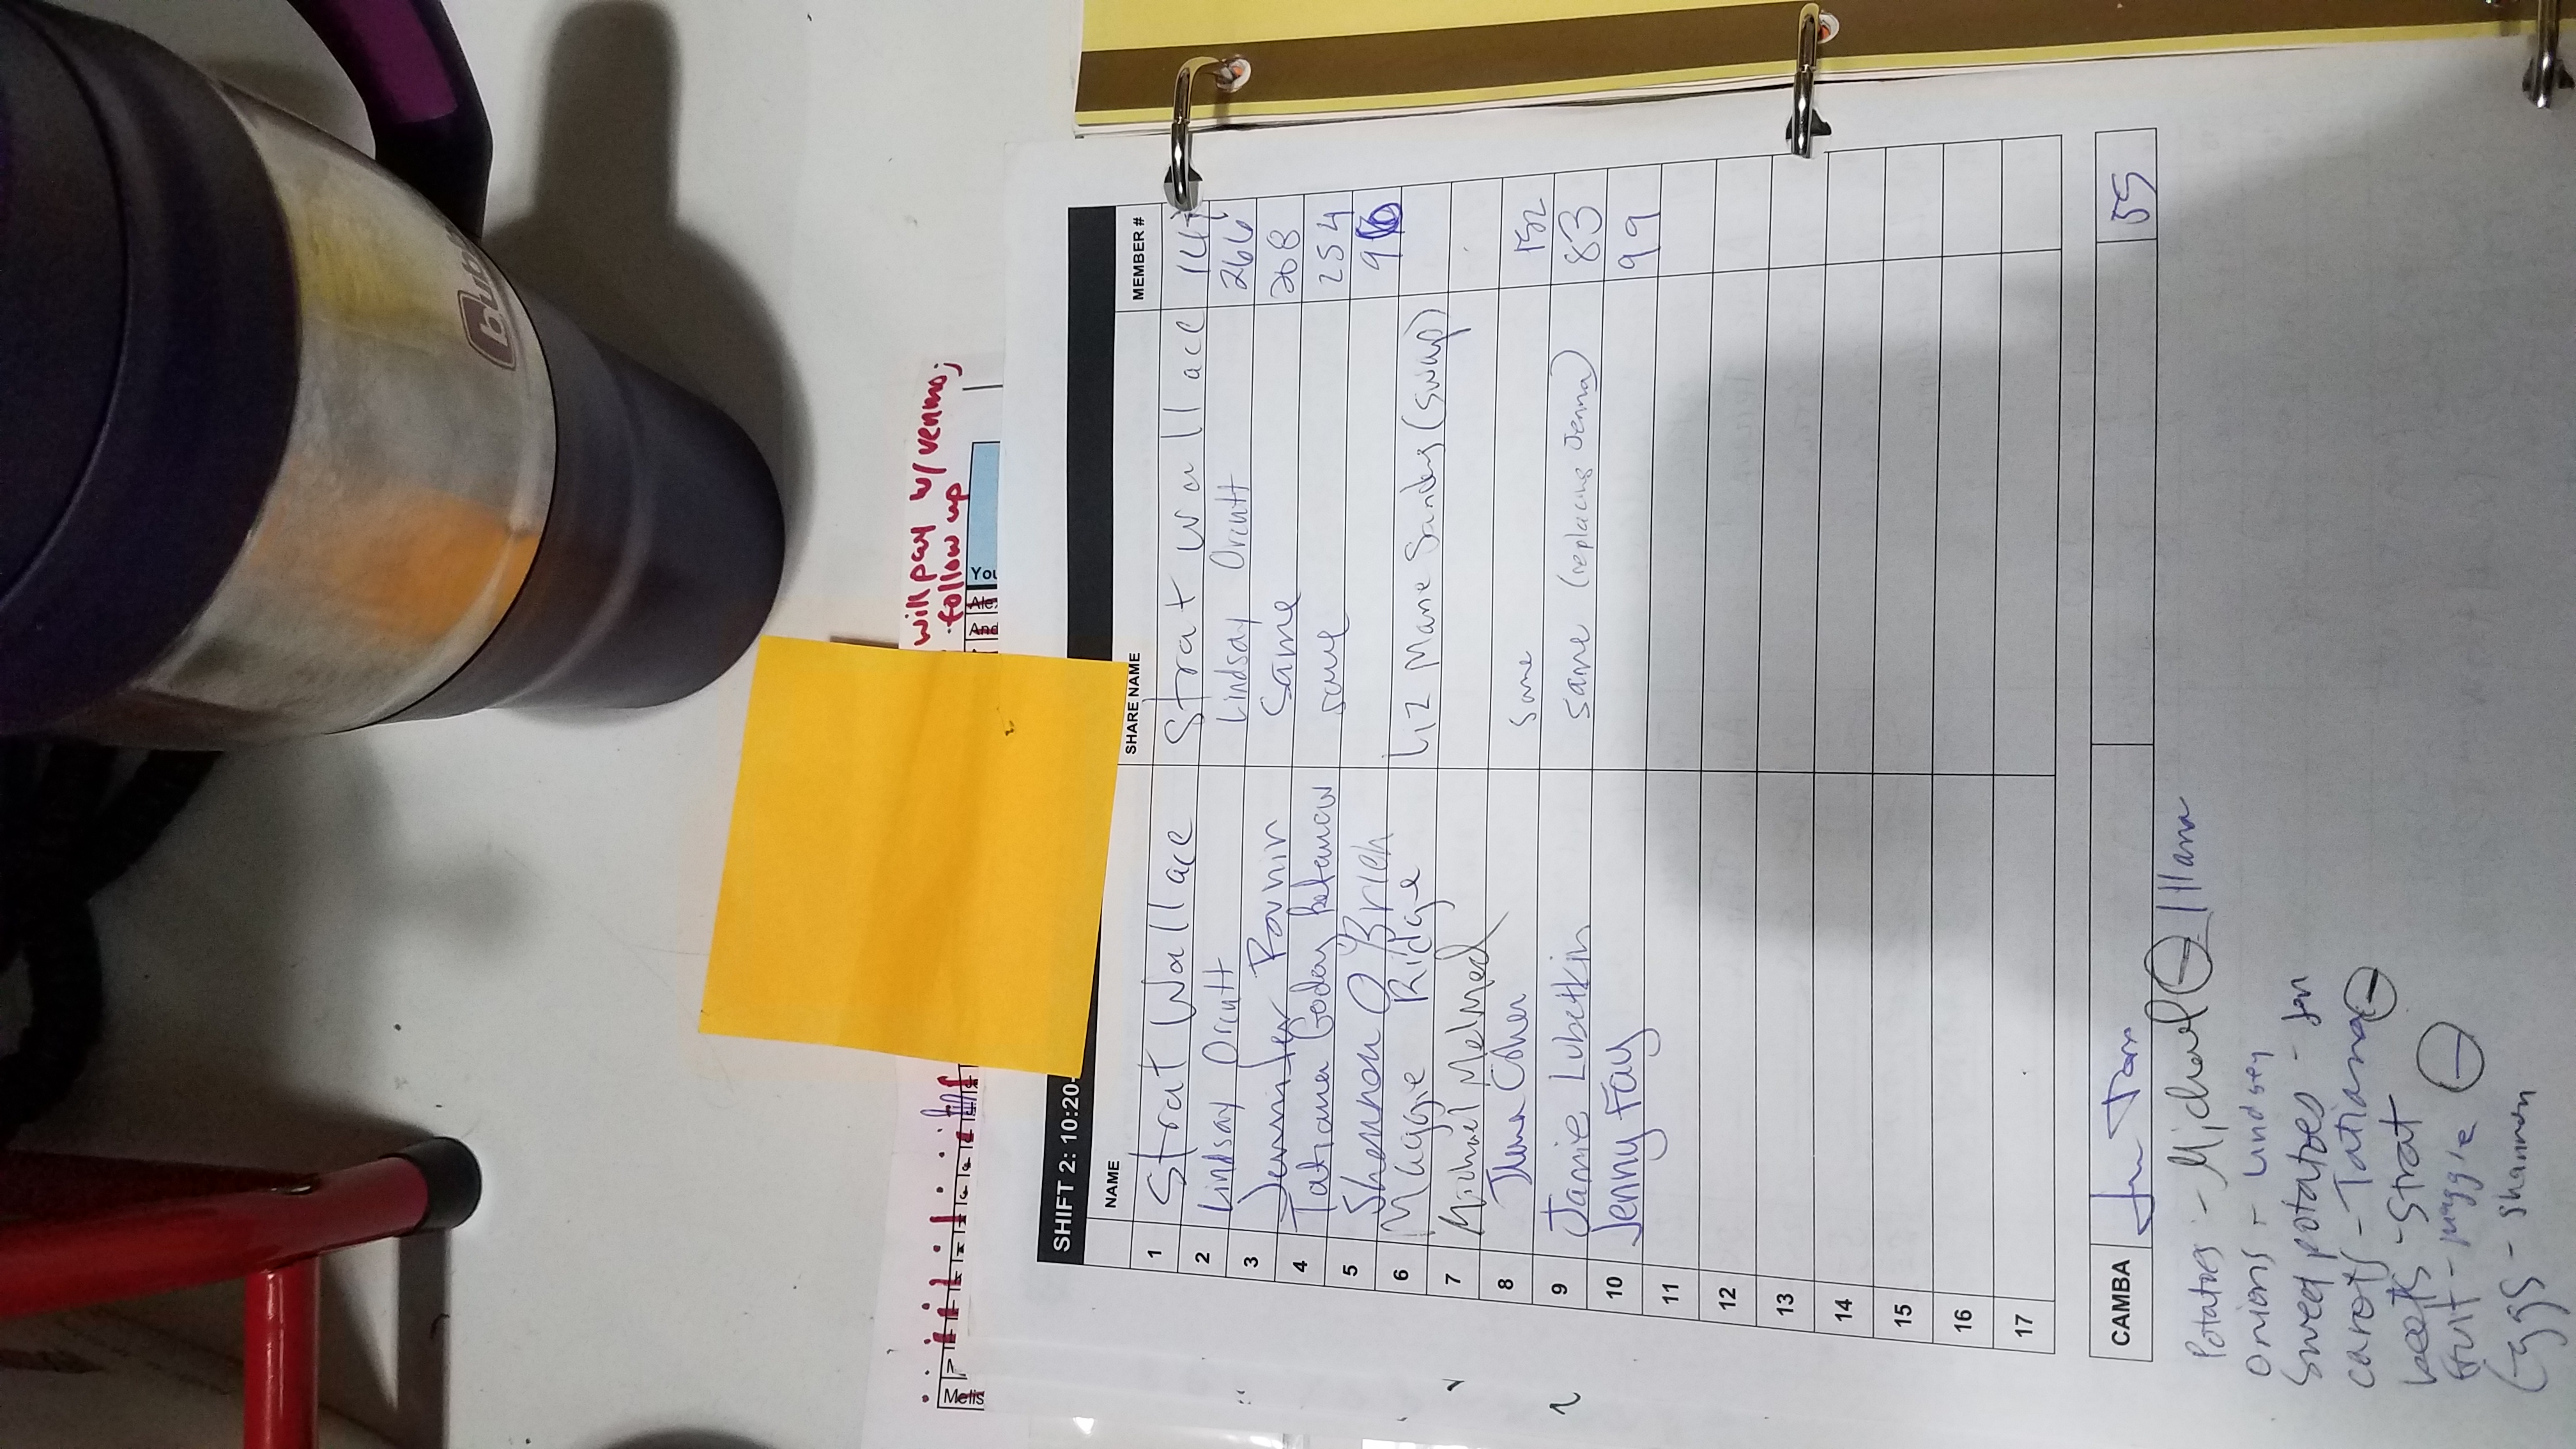 bubba
will pay w/venmo;
follow up
You
Ale
And
Melis
SHIFT 2: 10:20-
NAME SHARE NAME MEMBER #
1 Strat Wallace Strat Wallace 147
2 Lindsay Orcutt Lindsay Orcutt 266
3 Jennifer Ponnin Same 208
4 Tatiana Goday same 254
5 Shannon O'Brien 96
6 Maggie Ridge Liz Marie Sanders (swap)
7 Michael Melmed
8 Jenna Cohen Same 152
9 Jamie Lubetkin same (replacing Jenna) 83
10 Jenny Fay 99
11
12
13
14
15
16
17
CAMBA 55
Potatoes - Michael Illana
Onions - Lindsey
Sweet potatoes - Jen
carrots - Tatiana
beets - Strat
fruit - maggie
Eggs - Shannon